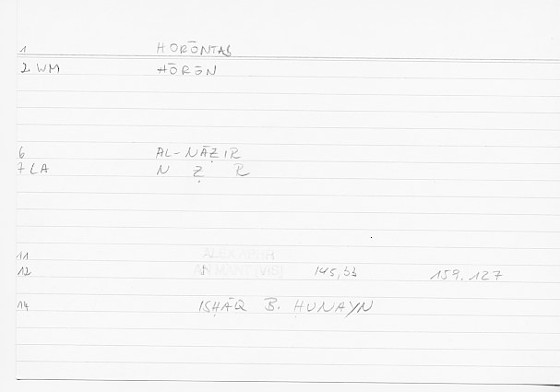 1 HORŌNTAS
2 WM HŌRŌN
6 AL-NĀẒIR
7 LA N Ẓ R
11
12 145,53 159.127
14 ISḤĀQ B. ḤUNAYN